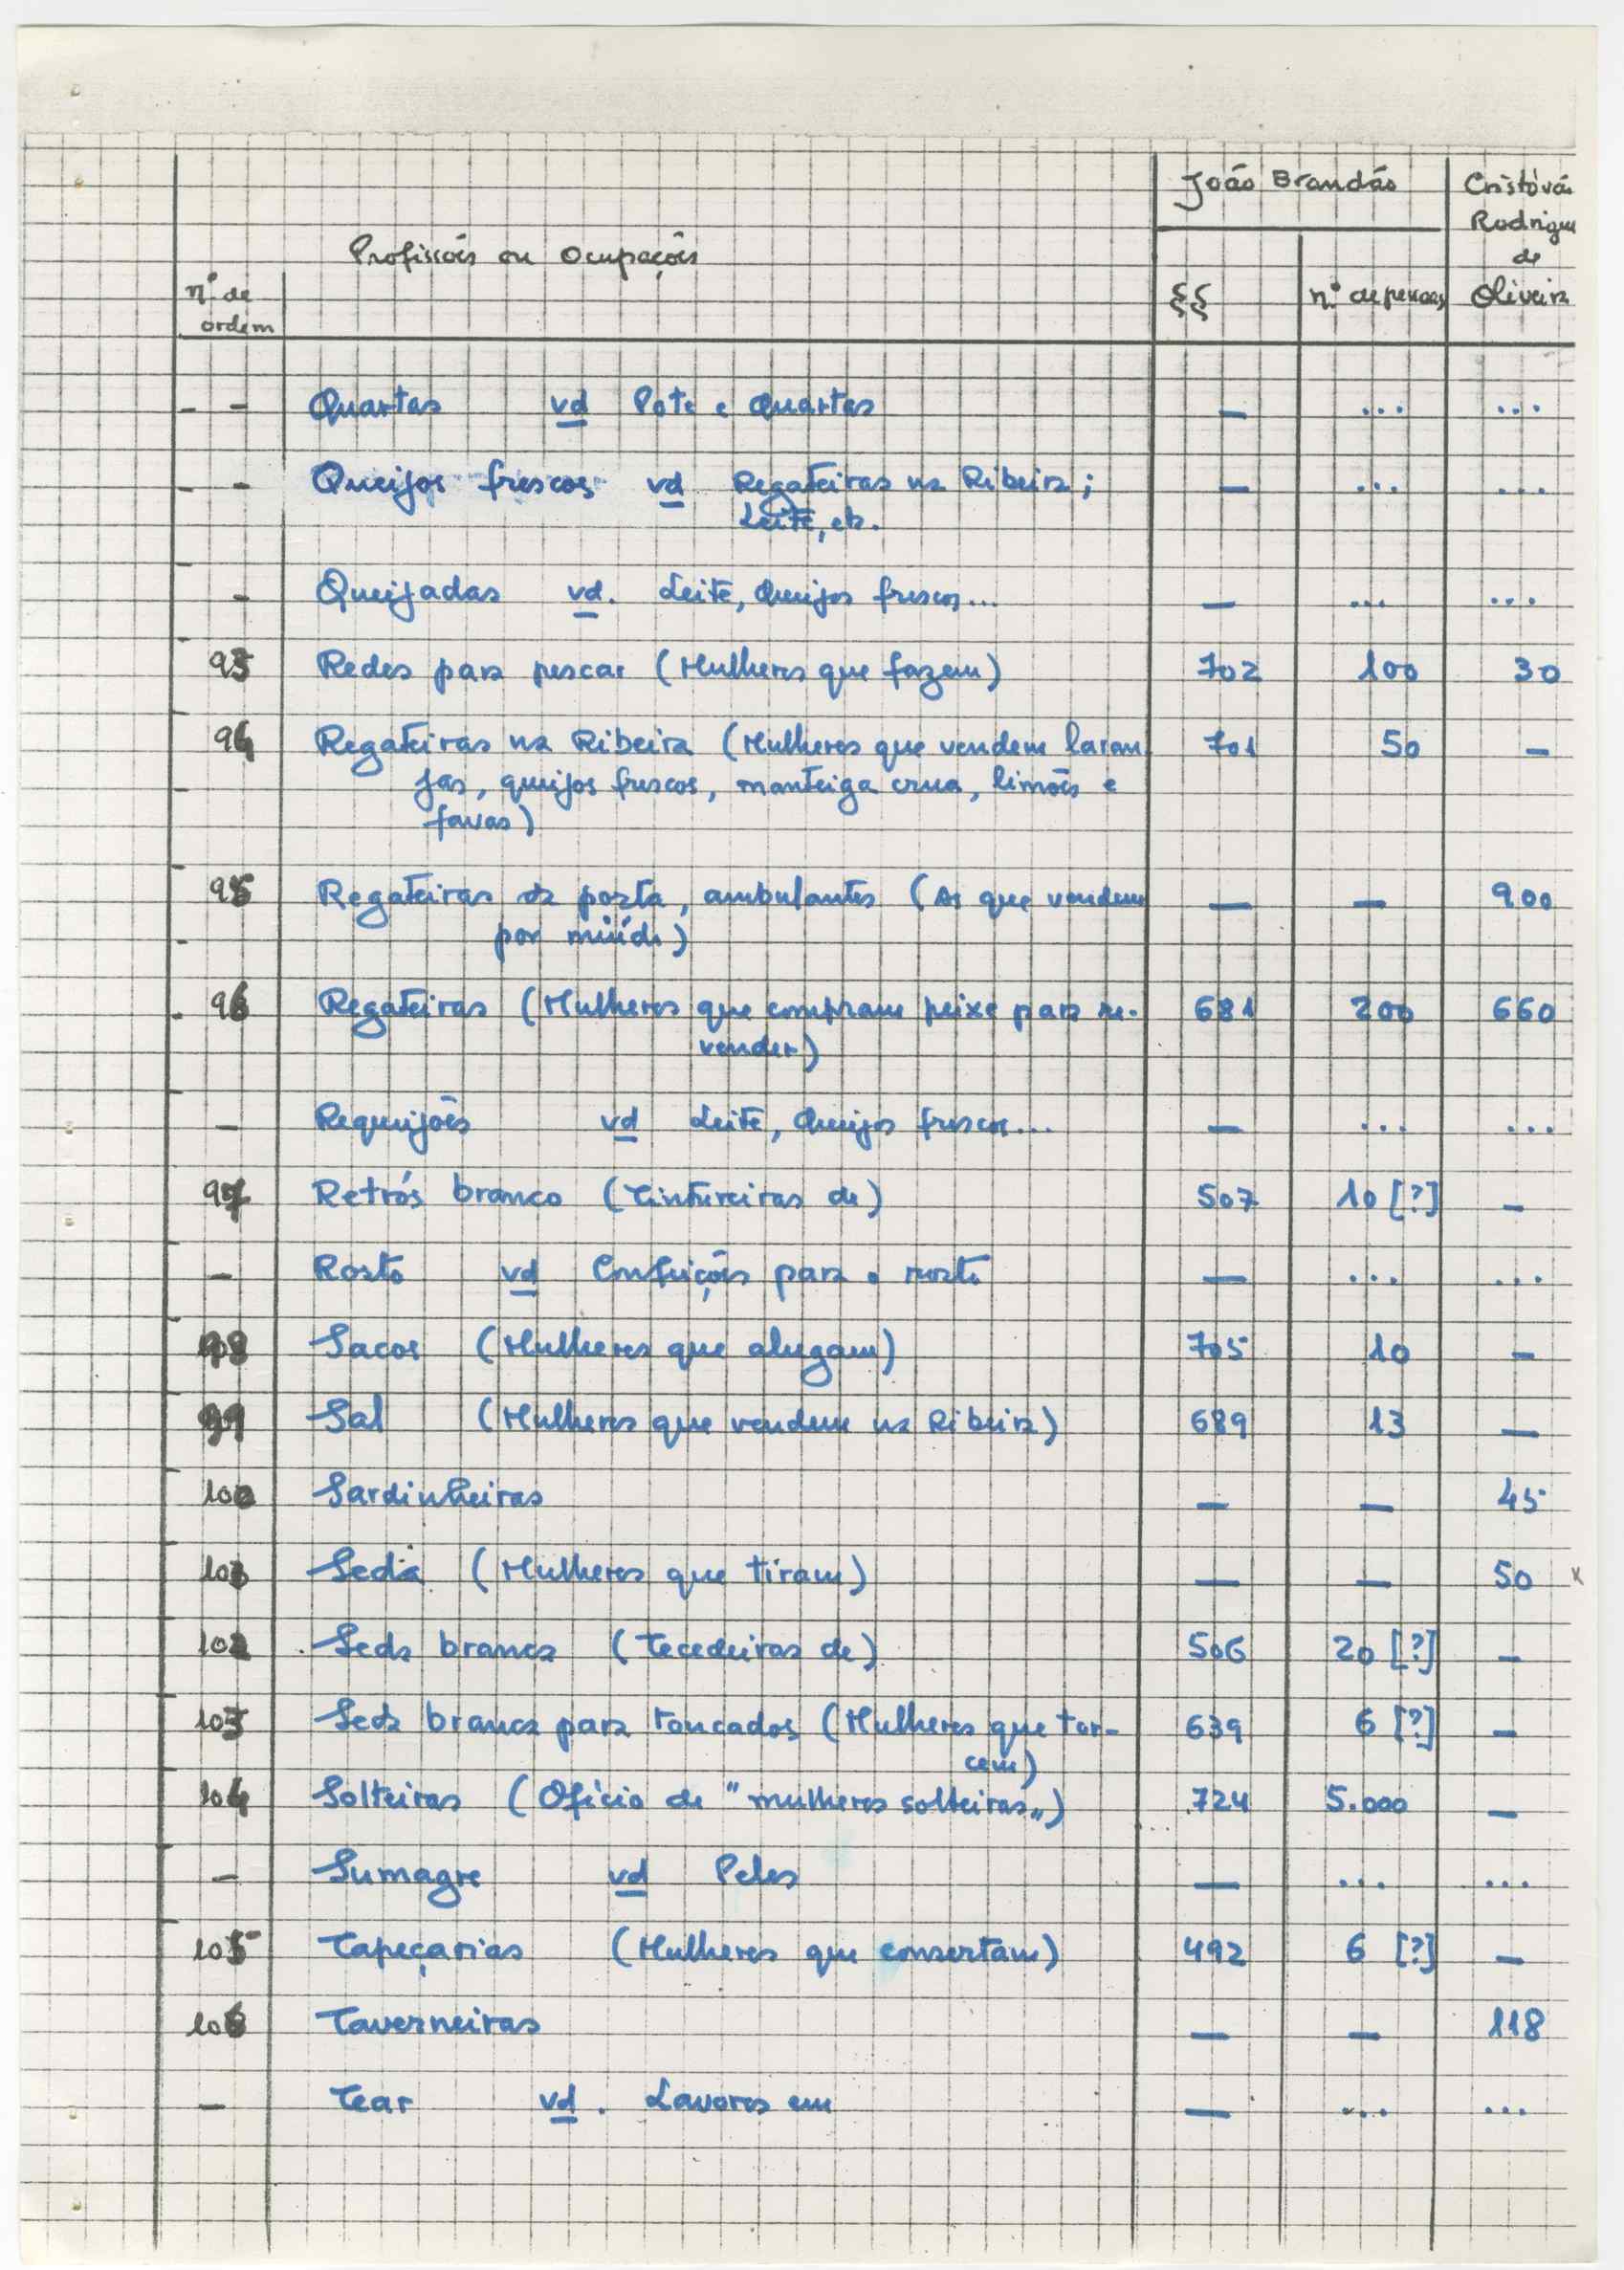 João Brandão Cristóvã
Rodrigue
Profissões ou Ocupações de
nº de §§ nº de pessoas Oliveira
ordem
- - Quartas vd Pote e Quartas — ... ...
- - Queijos frescos vd Regateiras na Ribeira; — ... ...
Leite, etc.
- Queijadas vd. Leite, Queijos frescos... — ... ...
93 Redes para pescar (Mulheres que fazem) 702 100 30
94 Regateiras na Ribeira (Mulheres que vendem laran 701 50 —
jas, queijos frescos, manteiga crua, limões e
favas)
95 Regateiras da porta, ambulantes (As que vendem — — 900
por miúdo)
96 Regateiras (Mulheres que compram peixe para re- 681 200 660
vender)
— Requeijões vd Leite, Queijos frescos... — ... ...
97 Retrós branco (Tintureiras de) 507 10 [?] —
— Rosto vd Confeições para o rosto — ... ...
98 Sacos (Mulheres que alugam) 705 10 —
99 Sal (Mulheres que vendem na Ribeira) 689 13 —
100 Sardinheiras — — 45
101 Seda (Mulheres que tiram) — — 50 x
102 Seda branca (Tecedeiras de) 506 20 [?] —
103 Seda branca para toucados (Mulheres que tor- 639 6 [?] —
cem)
104 Solteiras (Ofício de "mulheres solteiras") 724 5.000 —
— Sumagre vd Peles — ... ...
105 Tapeçarias (Mulheres que consertam) 492 6 [?] —
106 Taverneiras — — 118
— Tear vd. Lavores em — ... ...